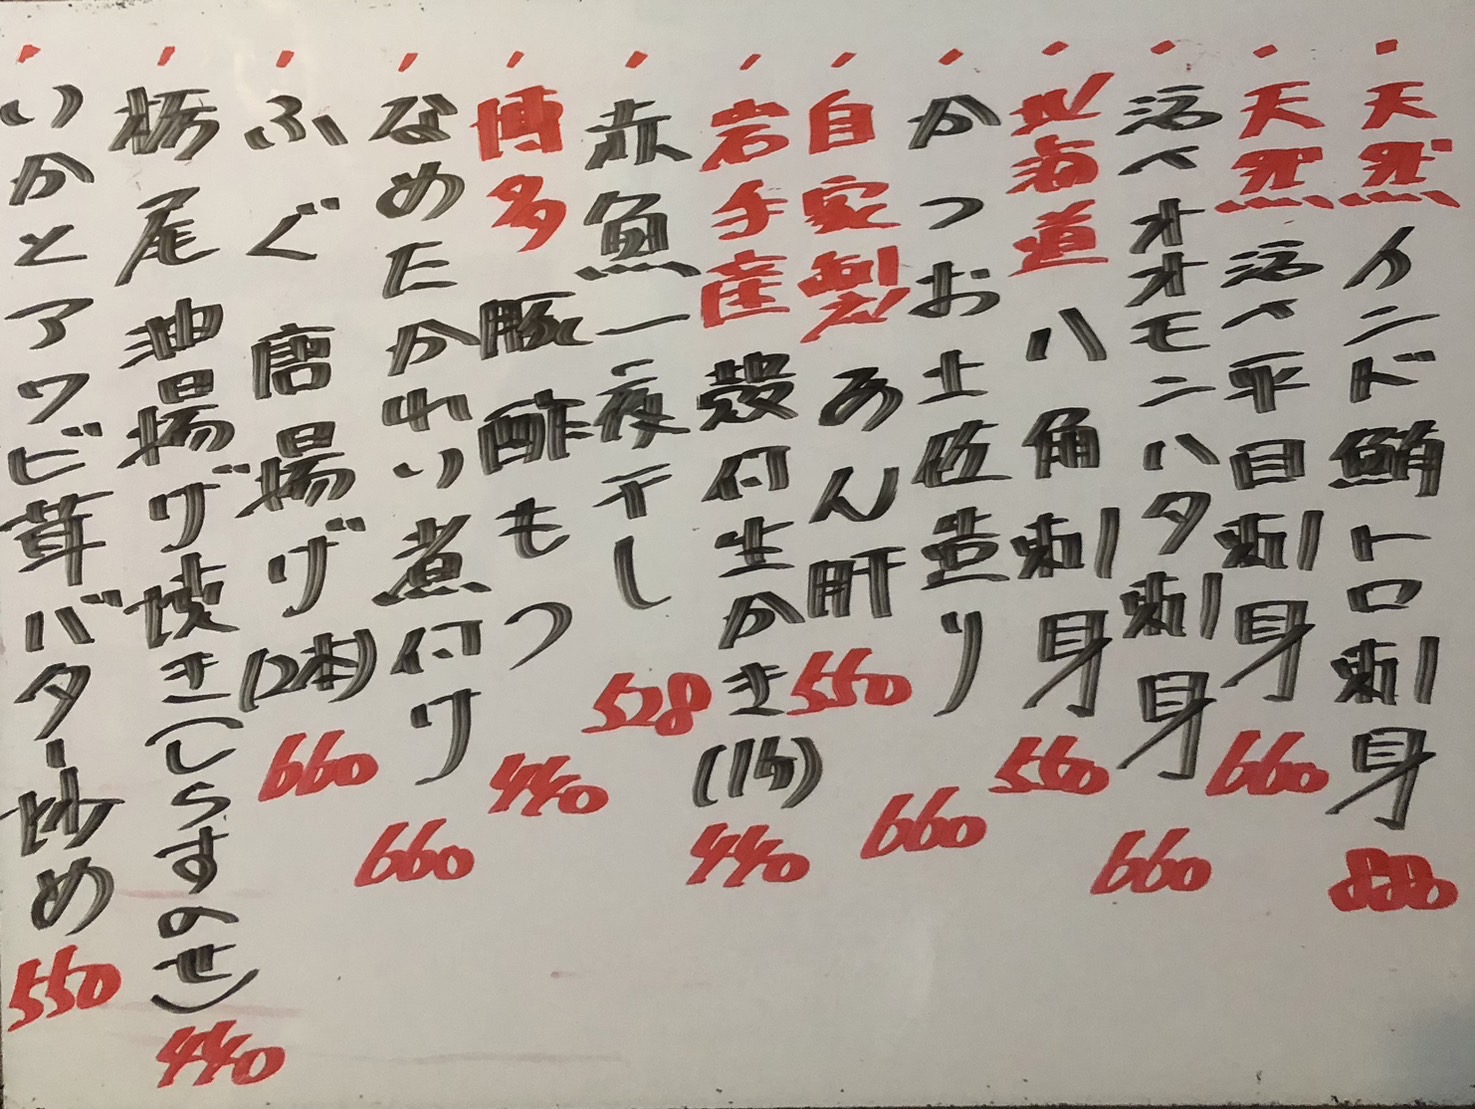 ・天然インド鮪トロ刺身 880
・天然活〆平目刺身 660
・活〆オオモンハタ刺身 660
・北海道八角刺身 560
・かつお土佐造り 660
・自家製あん肝 550
・岩手産殻付生かき(1ヶ) 440
・赤魚一夜干し 528
・博多豚酢もつ 440
・なめたかれい煮付け 660
・ふぐ唐揚げ(2本) 660
・栃尾油揚げ焼き(しらすのせ) 440
・いかとアワビ茸バター炒め 550